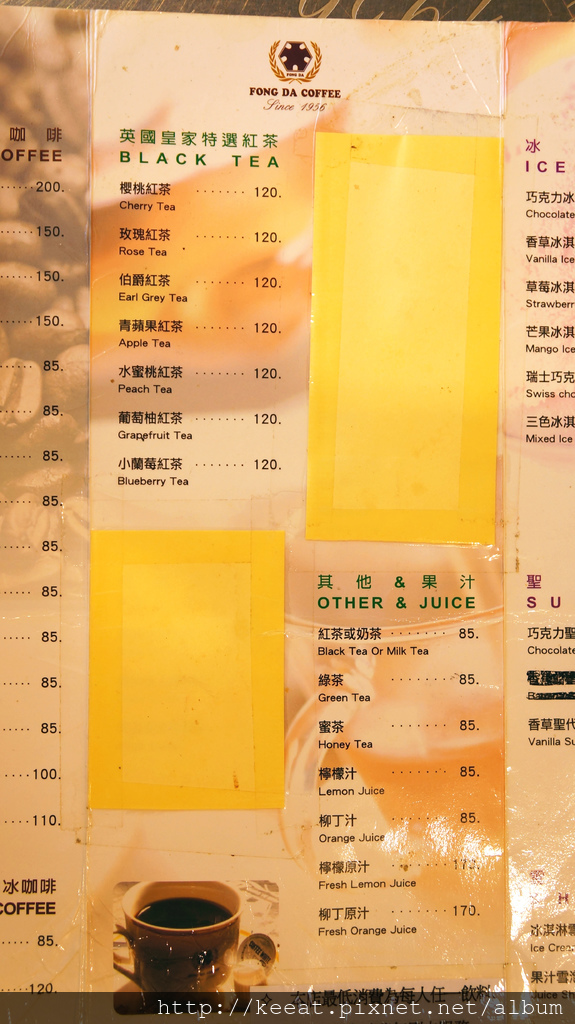 FONG DA
FONG DA COFFEE
Since 1956
咖啡
OFFEE
200.
150.
150.
150.
85.
85.
85.
85.
85.
85.
85.
85.
85.
100.
110.
冰咖啡
COFFEE
85.
120.
英國皇家特選紅茶
BLACK TEA
櫻桃紅茶 ······· 120.
Cherry Tea
玫瑰紅茶 ······· 120.
Rose Tea
伯爵紅茶 ······· 120.
Earl Grey Tea
青蘋果紅茶 ······· 120.
Apple Tea
水蜜桃紅茶 ······· 120.
Peach Tea
葡萄柚紅茶 ······· 120.
Grapefruit Tea
小蘭莓紅茶 ······· 120.
Blueberry Tea
其他&果汁
OTHER & JUICE
紅茶或奶茶 ········ 85.
Black Tea Or Milk Tea
綠茶 ········ 85.
Green Tea
蜜茶 ········ 85.
Honey Tea
檸檬汁 ········ 85.
Lemon Juice
柳丁汁 ········ 85.
Orange Juice
檸檬原汁 ········ 170.
Fresh Lemon Juice
柳丁原汁 ········ 170.
Fresh Orange Juice
本店最低消費為每人任一飲料
冰
ICE
巧克力冰
Chocolate
香草冰淇
Vanilla Ice
草莓冰淇
Strawberr
芒果冰淇
Mango Ice
瑞士巧克
Swiss cho
三色冰淇
Mixed Ice
聖
SU
巧克力聖
Chocolate
香草聖代
Vanilla Su
冰淇淋雪
Ice Crea
果汁雪泡
Juice Sh
http://keeat.pixnet.net/album